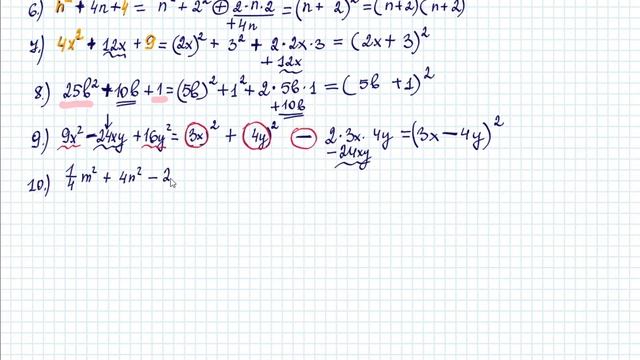 6.) n² + 4n + 4 = n² + 2² + 2·n·2 = (n + 2)² = (n+2)(n+2)
+4n
7.) 4x² + 12x + 9 = (2x)² + 3² + 2·2x·3 = (2x + 3)²
+12x
8.) 25b² + 10b + 1 = (5b)² + 1² + 2·5b·1 = (5b + 1)²
+10b
9.) 9x² - 24xy + 16y² = (3x)² + (4y)² - 2·3x·4y = (3x - 4y)²
-24xy
10.) 1/4 m² + 4n² - 2